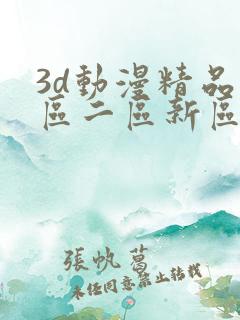 3d動漫精品
區二區新區
張帆葛
未經同意禁止轉載